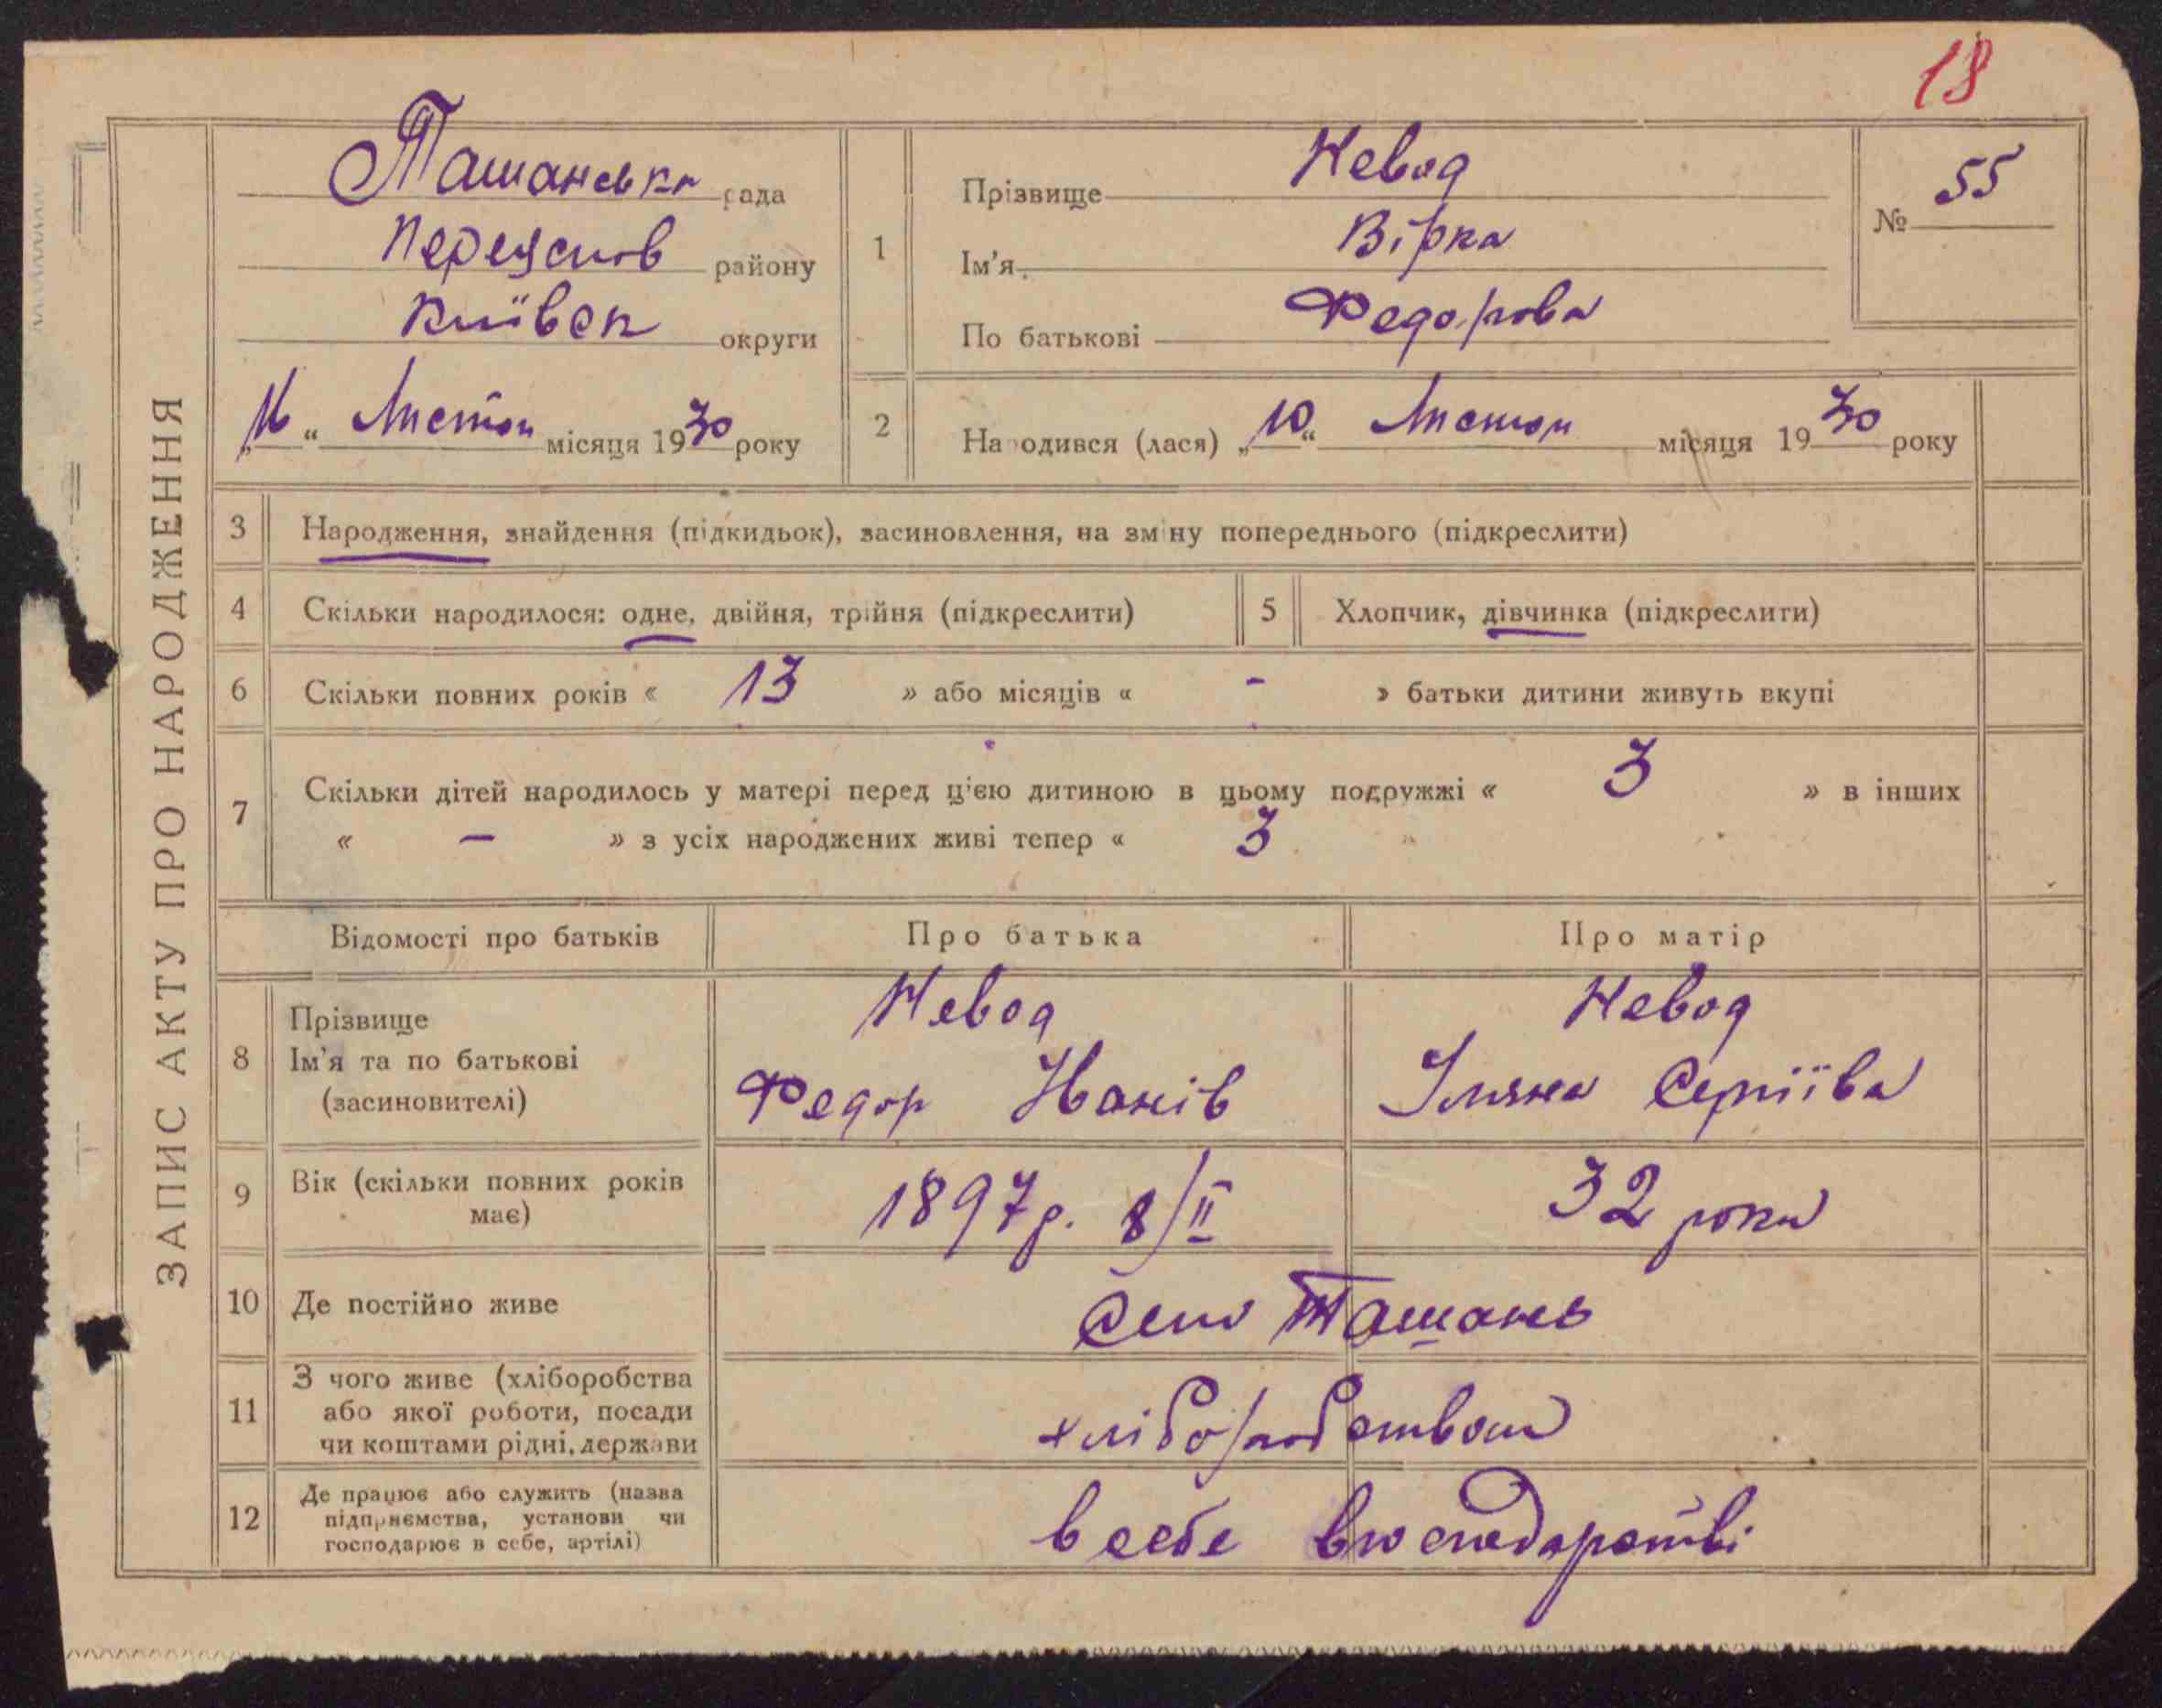 18
ЗАПИС АКТУ ПРО НАРОДЖЕННЯ
Ташанська рада
району
Київск округи
„16“ Листоп місяця 1930 року
1
Прізвище Невод
Ім'я Вірка
По батькові Федорова
№ 55
2 Народився (лася) „10“ Листоп місяця 1930 року
3 Народження, знайдення (підкидьок), засиновлення, на зміну попереднього (підкреслити)
4 Скільки народилося: одне, двійня, трійня (підкреслити) 5 Хлопчик, дівчинка (підкреслити)
6 Скільки повних років « 13 » або місяців « - » батьки дитини живуть вкупі
7 Скільки дітей народилось у матері перед цією дитиною в цьому подружжі « 3 » в інших
« — » з усіх народжених живі тепер « 3
Відомості про батьків Про батька Про матір
8 Прізвище
Ім'я та по батькові
(засиновителі)
Невод
Федор Іванів
Невод
Сергіїва
9 Вік (скільки повних років
має)
1897 р. 8/II
32 роки
10 Де постійно живе Село Ташань
11 З чого живе (хліборобства
або якої роботи, посади
чи коштами рідні, держави
хліборобством
12 Де працює або служить (назва
підприємства, установи чи
господарює в себе, артілі)
в себе